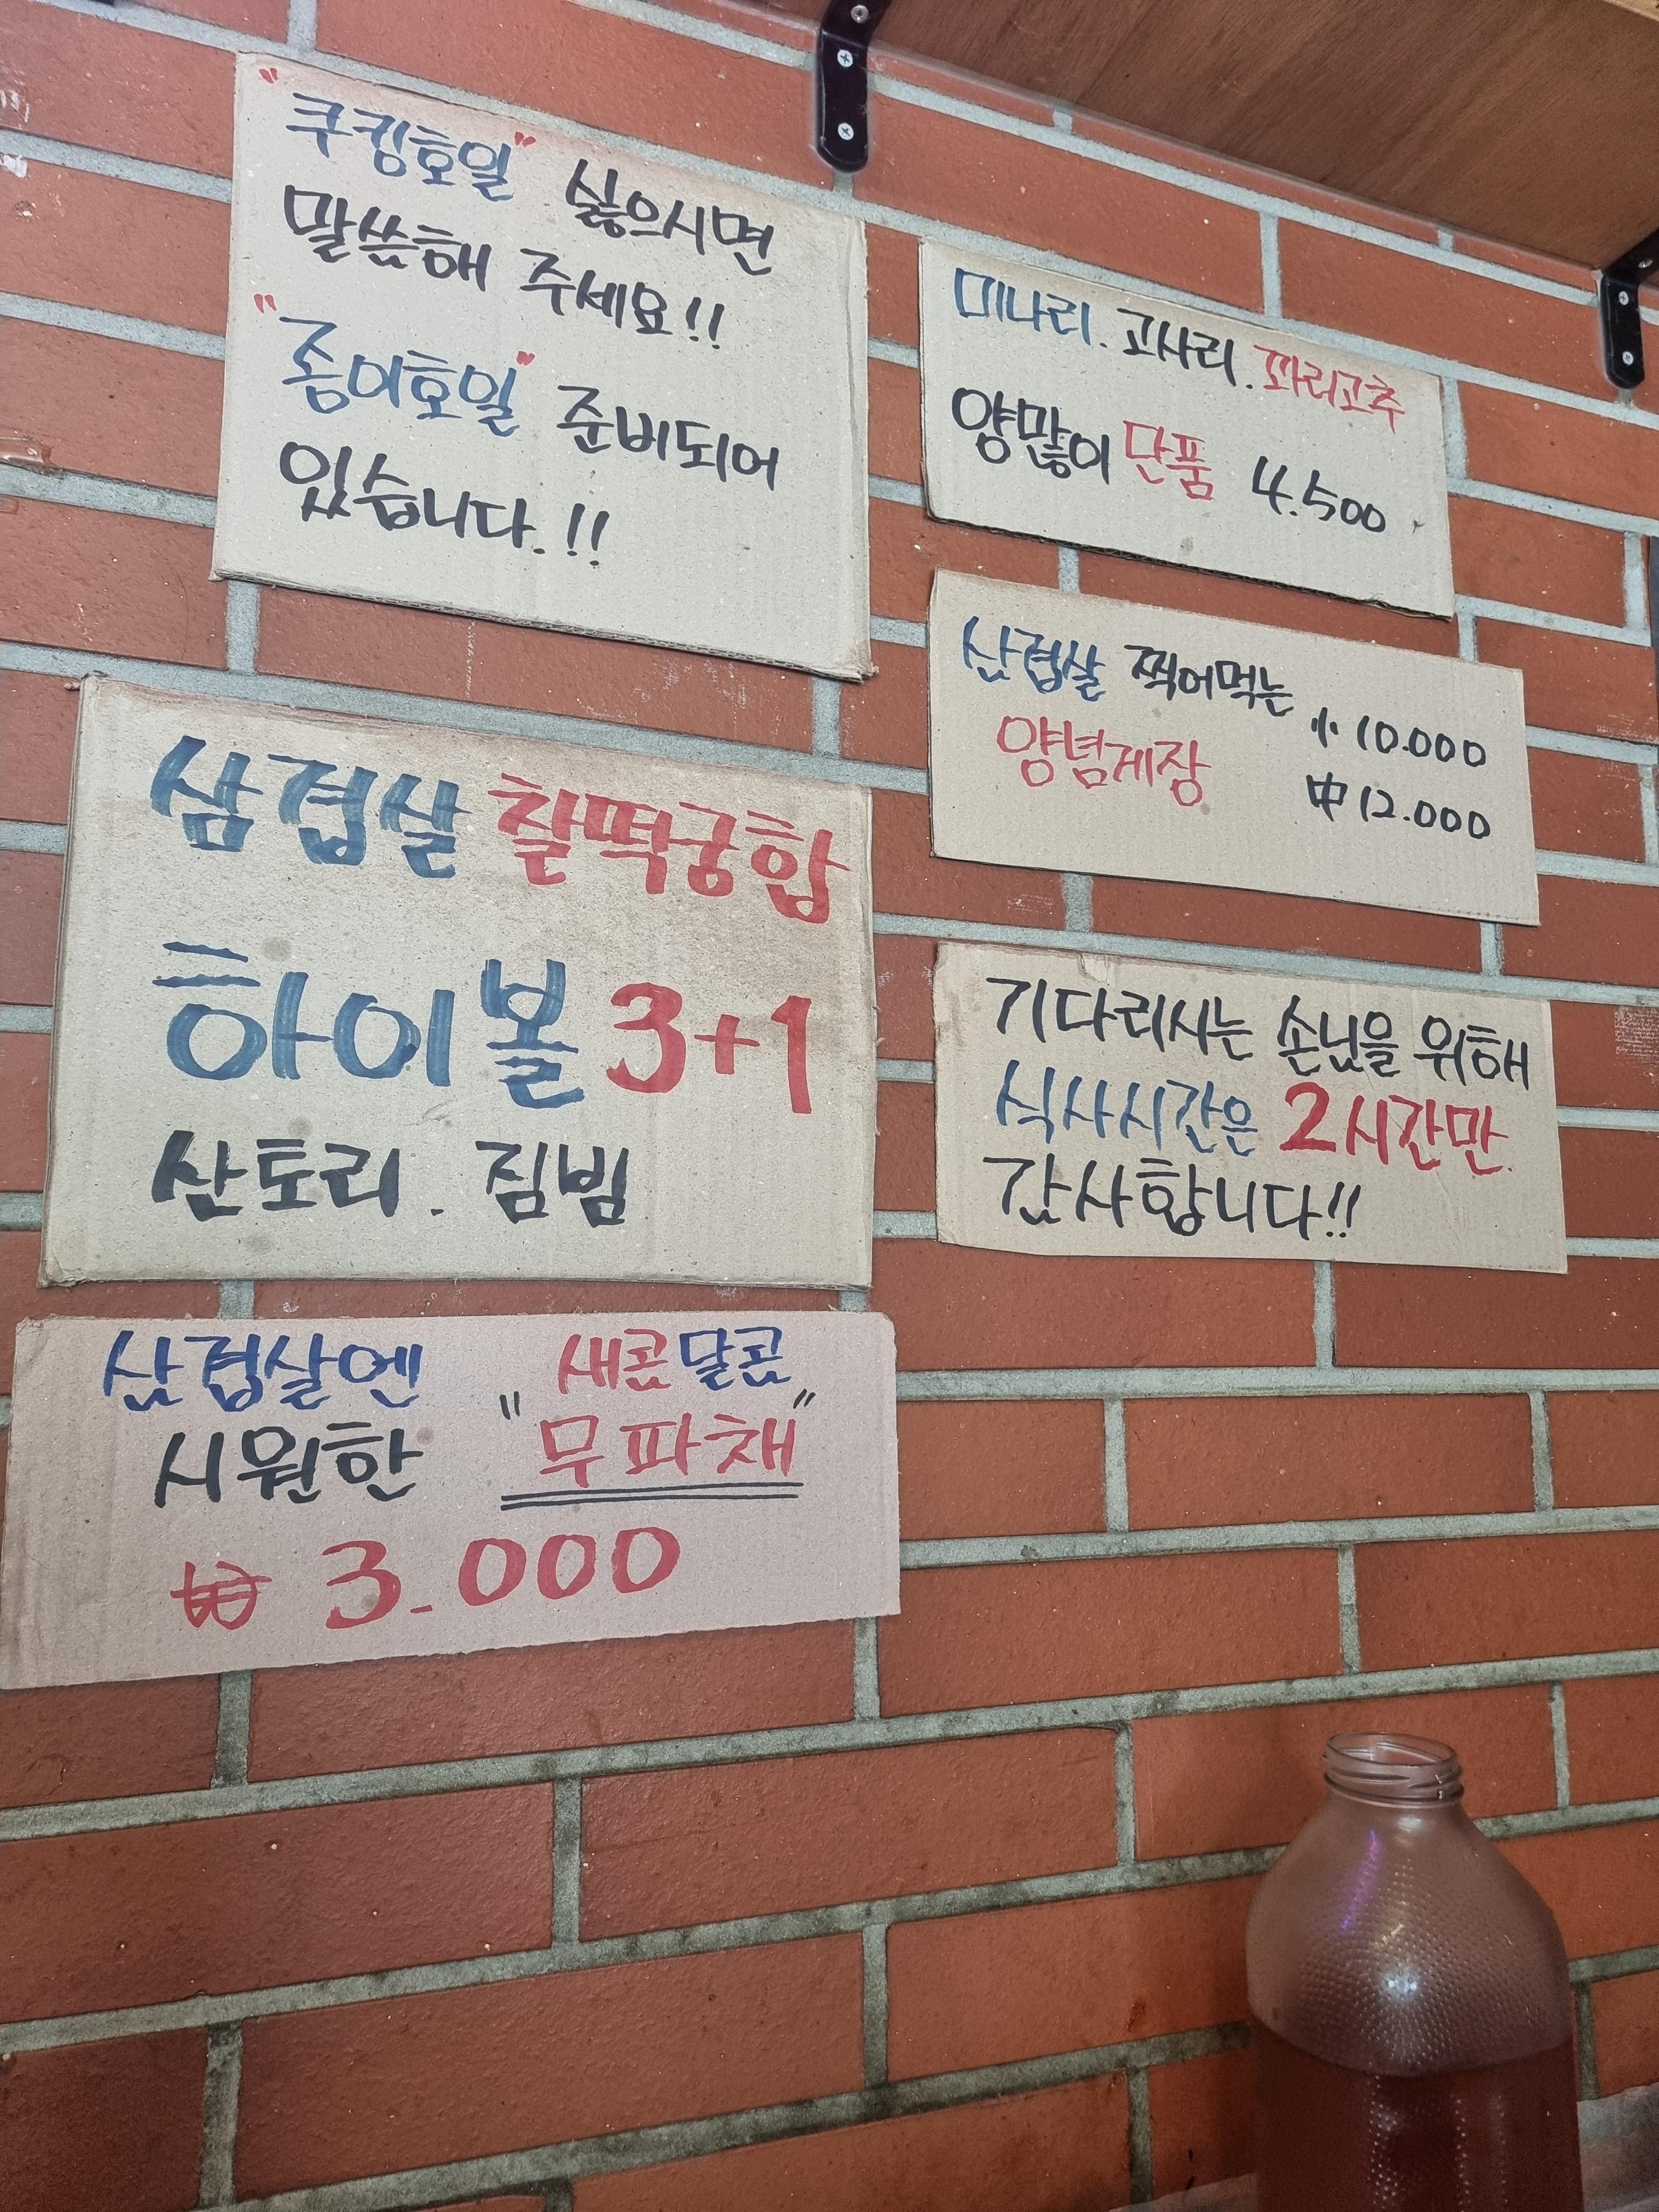 "쿠킹호일" 싫으시면
말씀해 주세요!!
"종이호일" 준비되어
있습니다.!!
미나리. 고사리. 꽈리고추
양많이 단품 4.500
삼겹살 찍어먹는 小 10.000
양념게장 中 12.000
삼겹살 찰떡궁합
하이볼 3+1
산토리. 짐빔
기다리시는 손님을 위해
식사시간은 2시간만.
감사합니다!!
삼겹살엔 새콤달콤
시원한 "무파채"
₩ 3.000